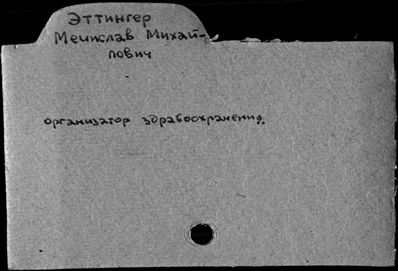 Эттингер
Мечислав Михай-
лович
организатор здравоохранения.